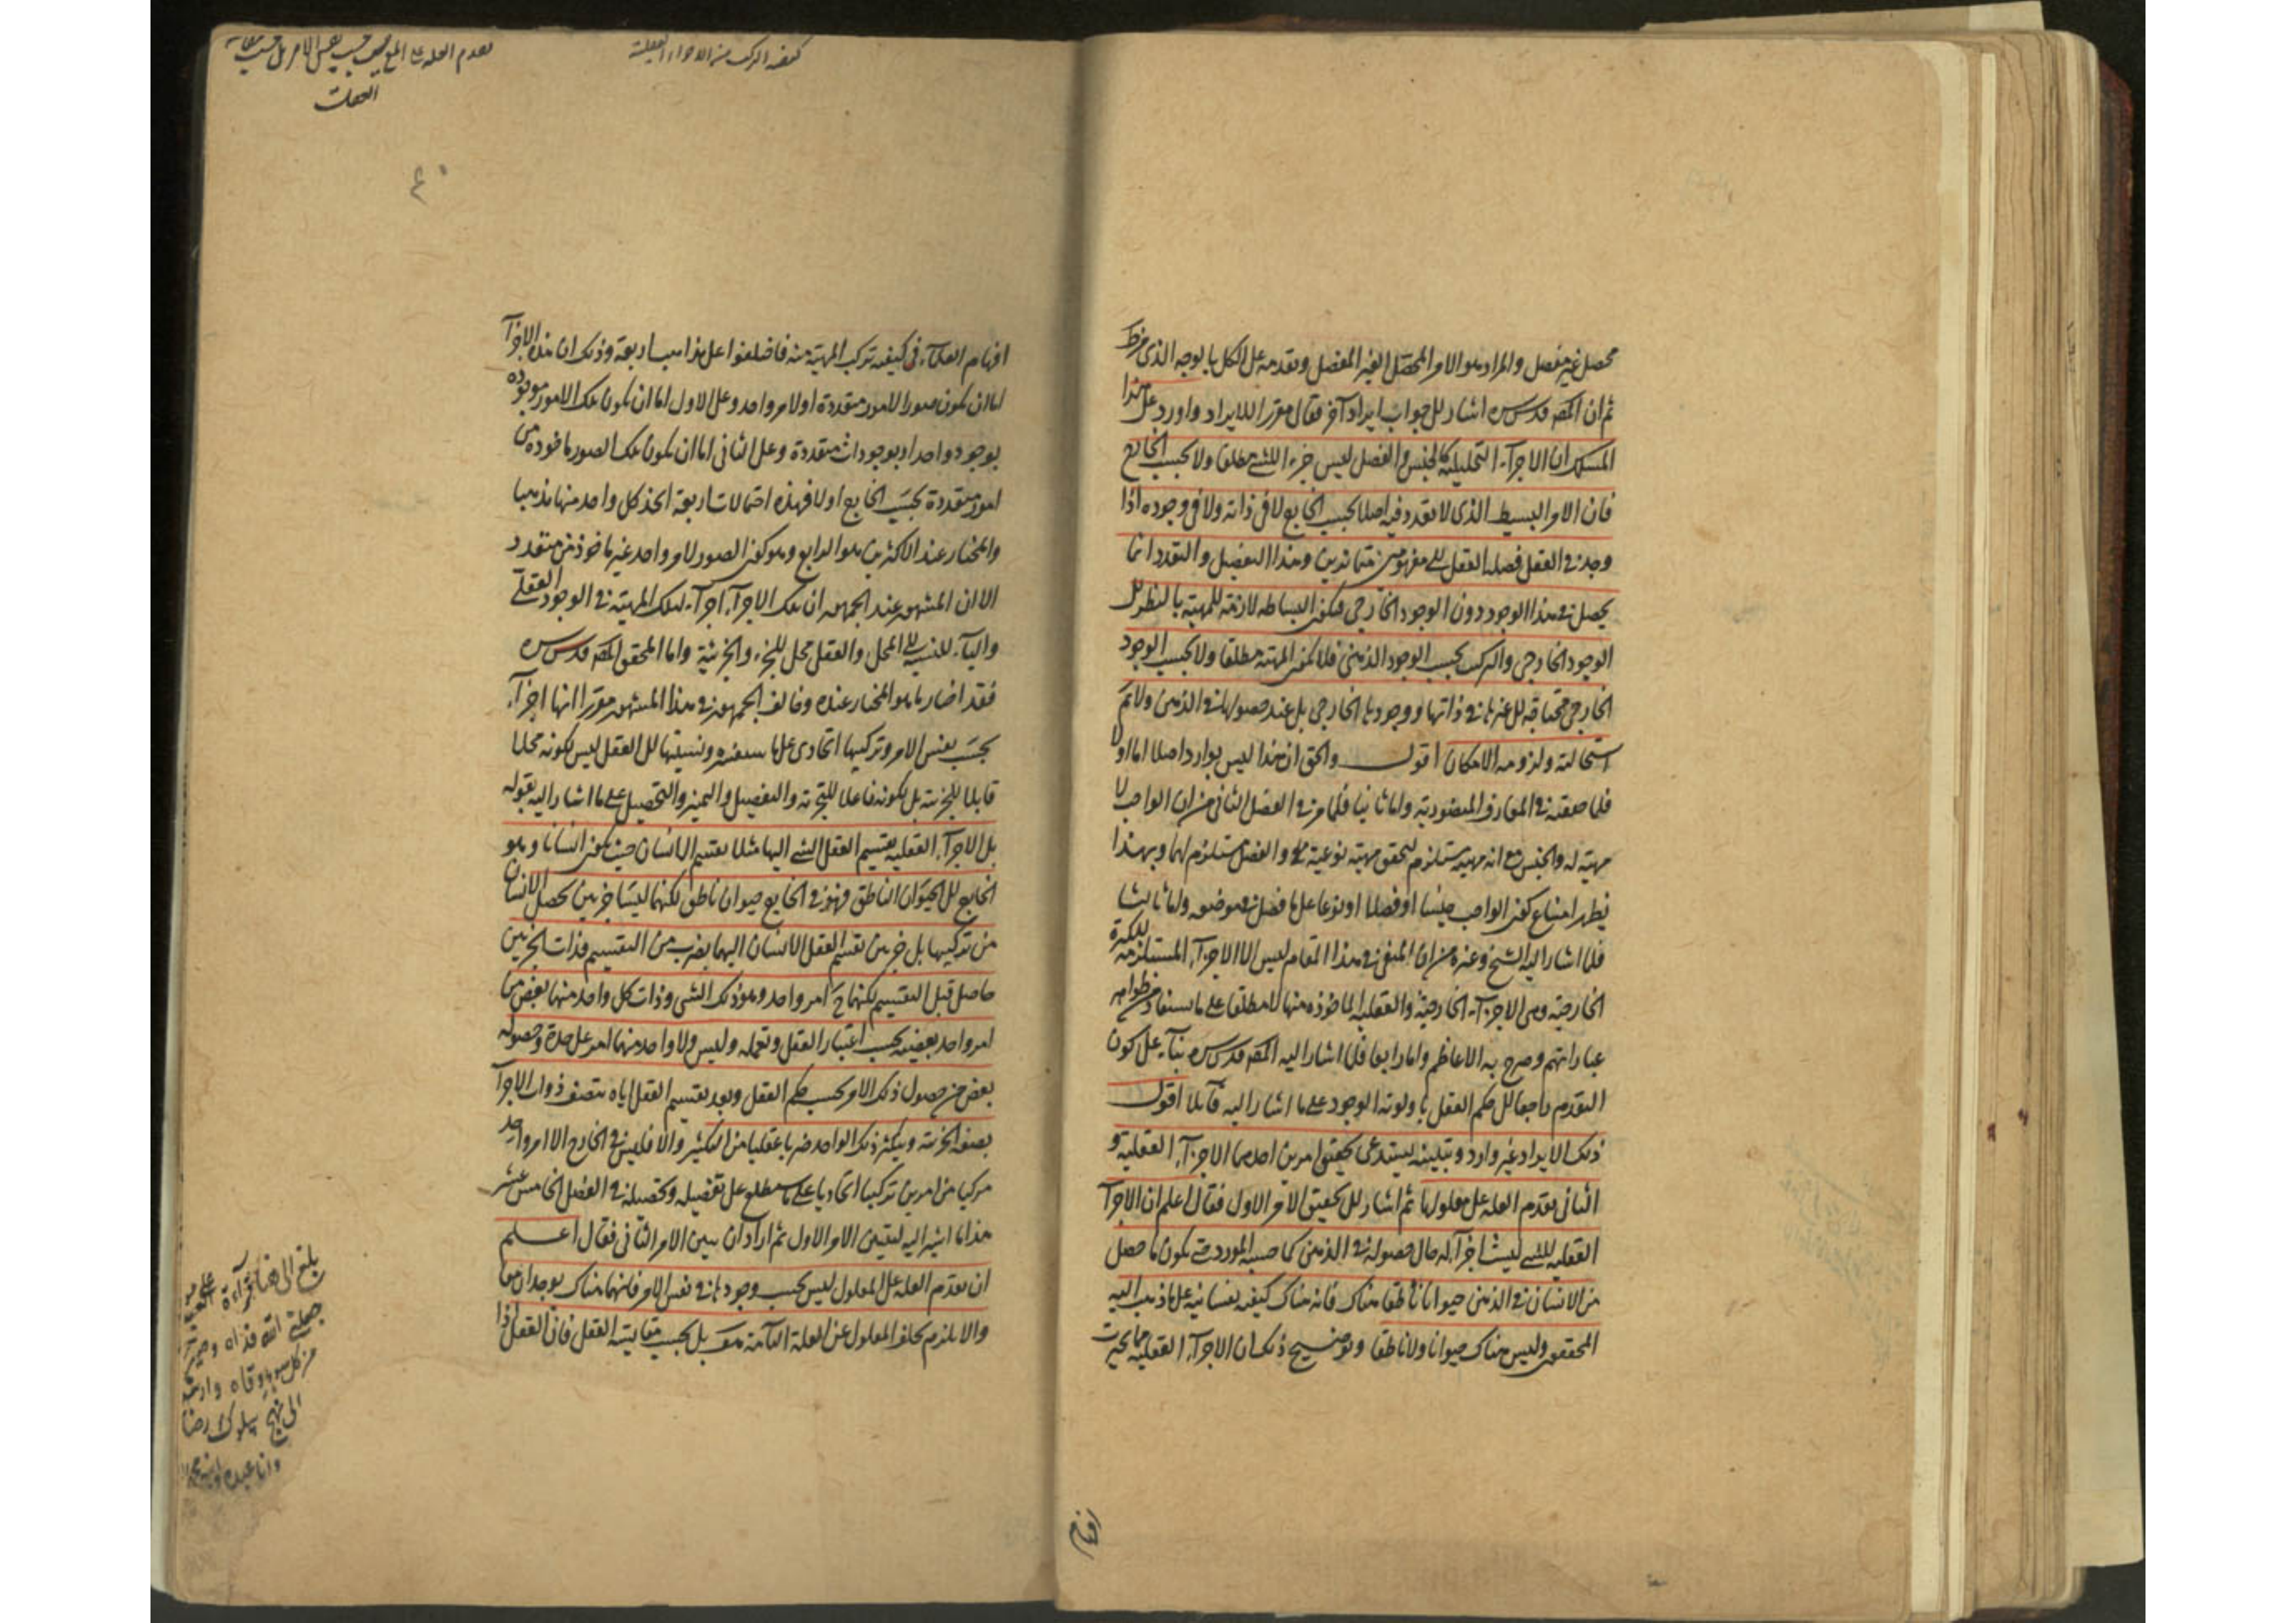 محصل غير مفصل والمراد هو الامر المحصل الغير المفصل وتقدمه على الكل بالوجه الذى
ثم ان المصـ قدس سره اشار الى جواب ايراد آخر فقال مقررا للايراد واورد على هذا
المسلك ان الاجزآء التحليلية كالجنس والفصل ليس جزء اللشئ مطلقا ولا بحسب الخارج
فان الامر البسيط الذى لا تعدد فيه اصلا بحسب الخارج لا فى ذاته ولا فى وجوده اذا
وجد فى العقل فصله العقل الى مفهومين متمايزين وهذا التفصيل والتعدد انما
يحصل فى هذا الوجود دون الوجود الخارجى فتكون البساطه لازمة للمهية بالنظر الى
الوجود الخارجى والتركيب بحسب الوجود الذهنى فلا تكون المهية مطلقا ولا بحسب الوجود
الخارجى محتاجة الى غيرها فى ذاتها ووجودها الخارجى بل عند حصولها فى الذهن ولا تم
استحالته ولزومه الامكان اقول والحق ان هذا ليس بوارد اصلا اما اولا
فلما حققته فى المعارف واما ثانيا فلما مر فى الفصل الثانى من ان الواجب لا
مهية له والجنس انه مهية يستلزم لتحقق مهية نوعية والفصل مستلزم لها وبهذا
يظهر امتناع كون الواجب جنسا او فصلا او نوعا على ما فصل فى موضعه واما ثالثا
فلما اشار اليه الشيخ وغيره من ان المنفى فى هذا المقام ليس الا الاجزآء المستلزمة للكثرة
الخارجية وهى الاجزآء الخارجية والعقلية الماخوذه منها لا مطلقا على ما يستفاد من ظواهر
عباراتهم وصرح به الاعاظم واما رابعا فلما اشار اليه المصـ قدس سره بنآء على كون
التقدم راجعا الى حكم العقل باولوية الوجود على ما اشار اليه قائلا اقول
ذلك الايراد غير وارد وتبيينه يستدعى تحقيق امرين احدهما الاجزآء العقلية و
الثانى تقدم العلة على معلولها ثم اشار الى تحقيق الامر الاول فقال اعلم ان الاجزآء
العقليه للشئ ليست اجزآء له حال حصوله فى الذهن كما حسبه المورد حتى يكون ما حصل
من الانسان فى الذهن حيوانا ناطقا هناك فانه هناك كيفية نفسانية على ما ذهب اليه
المحققون وليس هناك حيوانا ولا ناطقا وتوضيح ذلك ان الاجزآء العقليه مما تحيرت
افهام
كيفية التركيب من الاجزاء العقلية
تقدم العلة على المع ليس بحسب نفس الامر بل بحسب
العقلية
افهام العقلآء فى كيفية تركب المهية منه فاختلفوا على مذاهب اربعة وذلك ان هذه الاجزآء
اما ان تكون صورا لامور متعددة او لامر واحد وعلى الاول اما ان تكون تلك الامور موجوده
بوجود واحد او بوجودات متعددة وعلى الثانى اما ان تكون تلك الصور ماخوده من
امور متعددة بحسب الخارج او لا فهذه احتمالات اربعة اتخذ كل واحد منها مذهبا
والمختار عند الاكثرين هو الرابع وهو كون الصور لامر واحد غير ماخوذ من متعدد
الا ان المشهور عند الجمهور ان تلك الاجزآء اجزآء لتلك المهية فى الوجود العقلى
واليآء للنسبة الى المحل والعقل محل للجزء والجزئية واما المحقق المصـ قدس سره
فقد اختار ما هو المختار عنده وخالف الجمهور فى هذا المشهور مقررا انها اجزآء
بحسب نفس الامر وتركيبها اتحادى على ما ونسبتها الى العقل ليس لكونه محلا
قابلا للجزئية بل لكونه فاعلا للتجزية والتفصيل والتميز والتحصيل على ما اشار اليه بقوله
بل الاجزآء العقليه يقسيم العقل الشئ اليها مثلا يقسم الانسان حيث يكون انسانا وهو
الخارج الى الحيوان الناطق فهو فى الخارج حيوان ناطق لكنهما ليسا جزءين تحصل الانسان
من تركيبها بل جزءين تقسيم العقل الانسان اليهما بضرب من التقسيم فذات الجزءين
حاصل قبل التقسيم لكنهما ح امر واحد وهو ذلك الشى وذات كل واحد منهما بعض من
امر واحد بعضيته بحسب اعتبار العقل وتعمله وليس ولا واحد منهما امر على حدة وحصوله
بعض من حصول ذلك الامر بحسب حكم العقل وبعد تقسيم العقل اياه يتصف ذوات الاجزآء
بصفة الجزئية ويتكثر ذلك الواحد ضربا عقليا من التكثير والا فليس فى الخارج الا امر واحد
مركبا من امرين تركيبا اتحاديا على ما ستطلع على تفصيله وتحصيله فى الفصل الخامس عشر
هذا ما اشير اليه لتعيين الامر الاول ثم اراد ان يبين الامر الثانى فقال اعـــلم
ان تقدم العلة على المعلول ليس بحسب وجودها فى نفس الامر فانهما هناك يوجدان معا
والا يلزم تخلف المعلول عن العلة التآمة بل بحسب مقايسة العقل فان العقل اذا
بلغ الى هنا قرآءة
جعلنى الله فداه
من كل سوء وقاه
الى نهج سلوك رضا
وانا عبده